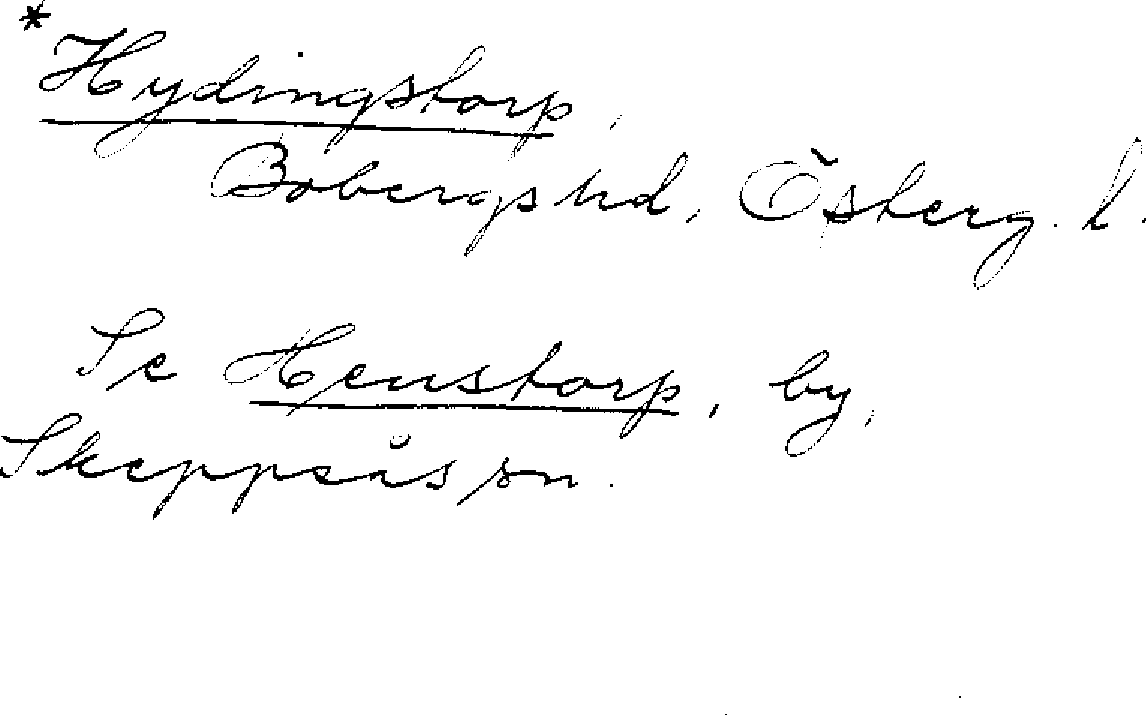 *Hydingstorp,
Bobergs hd, Österg. l.
Se Henstorp, by,
Skeppsås sn.